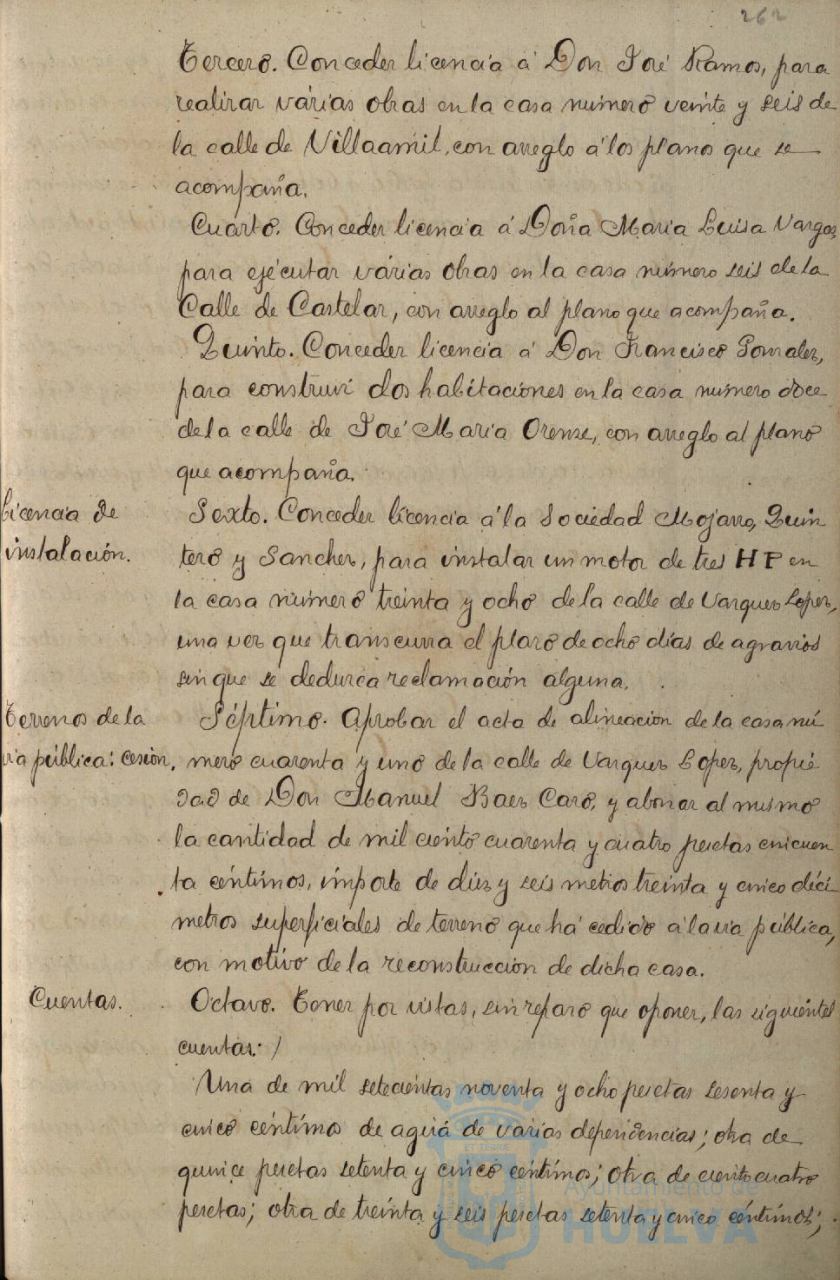 262
Tercero. Conceder licencia á Don José Ramos, para
realizar várias obras en la casa número veinte y seis de
la calle de Villaamil, con arreglo á los planos que se
acompaña.
Cuarto. Conceder licencia á Doña Maria Luisa Vargas,
para ejécutar várias obras en la casa número seis de la
Calle de Castelar, con arreglo al plano que acompaña.
Quinto. Conceder licencia á Don Francisco Gonzalez,
para construir dos habitaciones en la casa número doce
de la calle de José Maria Orense, con arreglo al plano
que acompaña.
Licencia de
instalación.
Sexto. Conceder licencia á la Sociedad Mojarro, Quin
tero y Sanchez, para instalar un motor de tres HP en
la casa número treinta y ocho de la calle de Vazquez Lopez,
una vez que transcurra el plazo de ocho días de agravios
sin que se deduzca reclamación alguna.
Terrenos de la
via pública: cesion.
Séptimo. Aprobar el acta de alineacion de la casa nú
mero cuarenta y uno de la calle de Vazquez Lopez, propie
dad de Don Manuel Baez Caro, y abonar al mismo
la cantidad de mil ciento cuarenta y cuatro pesetas cincuen
ta céntimos, importe de diez y seis metros treinta y cinco decí
metros superficiales de terreno que há cedido á la via pública,
con motivo de la reconstruccion de dicha casa.
Cuentas.
Octavo. Tener por vistas, sin reparo que oponer, las siguientes
cuentas: /
Una de mil setecientas noventa y ocho pesetas sesenta y
cinco céntimos de agua de varias dependencias; otra de
quince pesetas setenta y cinco céntimos; otra de ciento cuatro
pesetas; otra de treinta y seis pesetas setenta y cinco céntimos;
Ayuntamiento de
HUELVA